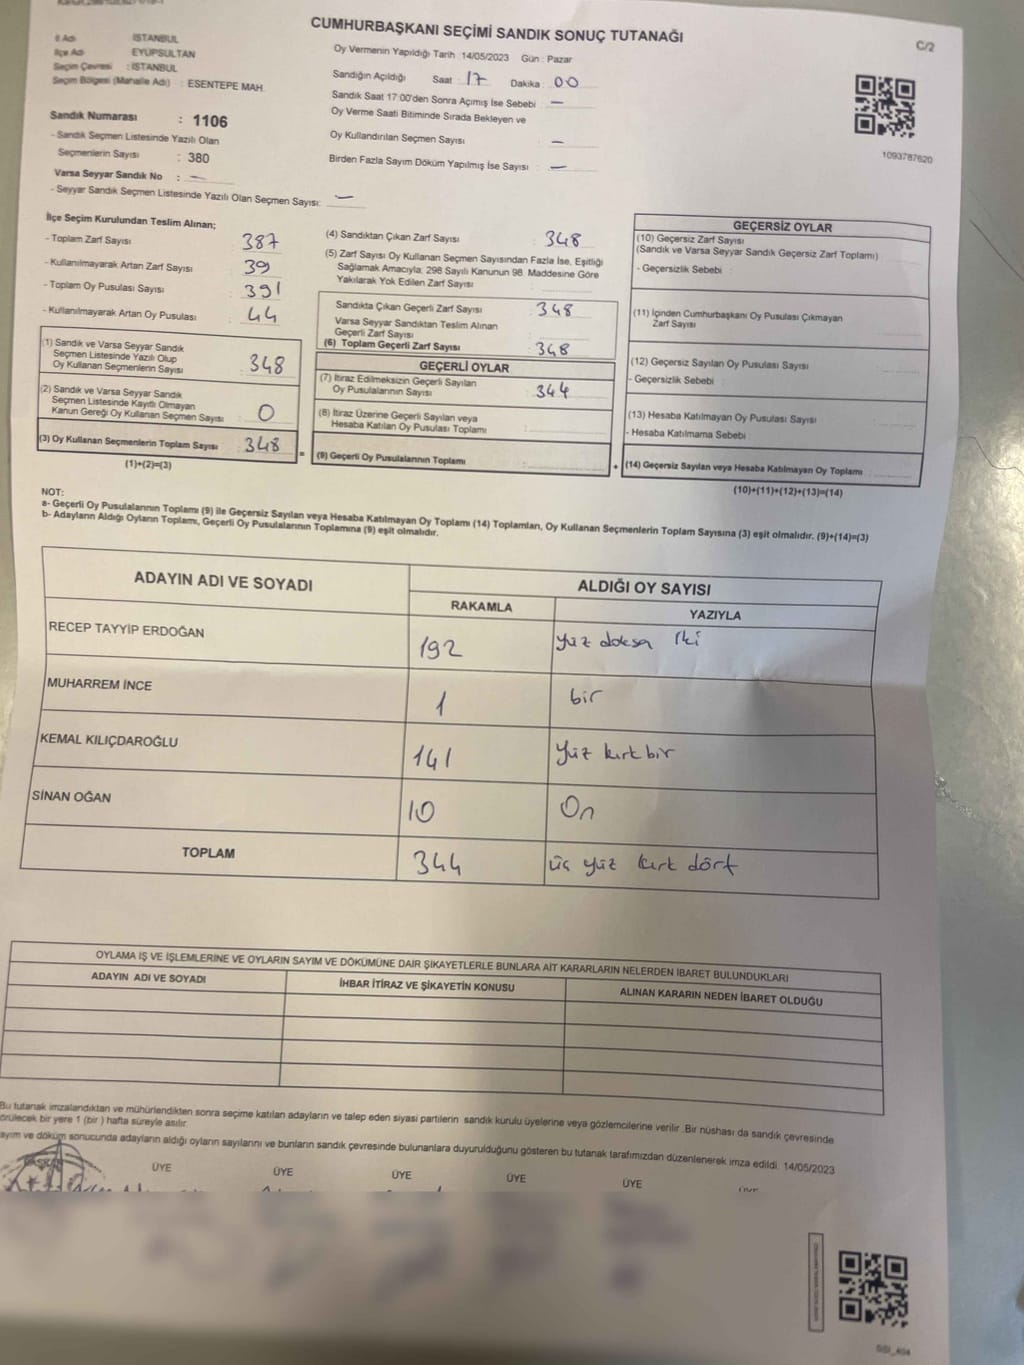 CUMHURBAŞKANI SEÇİMİ SANDIK SONUÇ TUTANAĞI
C/2
İl Adı : İSTANBUL
İlçe Adı : EYÜPSULTAN
Seçim Çevresi : İSTANBUL
Seçim Bölgesi (Mahalle Adı) : ESENTEPE MAH.
Sandık Numarası : 1106
- Sandık Seçmen Listesinde Yazılı Olan
Seçmenlerin Sayısı : 380
Varsa Seyyar Sandık No : —
- Seyyar Sandık Seçmen Listesinde Yazılı Olan Seçmen Sayısı: —
Oy Vermenin Yapıldığı Tarih : 14/05/2023 Gün : Pazar
Sandığın Açıldığı Saat : 17 Dakika : 00
Sandık Saat 17:00'den Sonra Açımış İse Sebebi : —
Oy Verme Saati Bitiminde Sırada Bekleyen ve
Oy Kullandırılan Seçmen Sayısı : —
Birden Fazla Sayım Döküm Yapılmış İse Sayısı : —
1093787620
İlçe Seçim Kurulundan Teslim Alınan;
- Toplam Zarf Sayısı : 387
- Kullanılmayarak Artan Zarf Sayısı : 39
- Toplam Oy Pusulası Sayısı : 391
- Kullanılmayarak Artan Oy Pusulası : 44
(1) Sandık ve Varsa Seyyar Sandık
Seçmen Listesinde Yazılı Olup
Oy Kullanan Seçmenlerin Sayısı : 348
(2) Sandık ve Varsa Seyyar Sandık
Seçmen Listesinde Kayıtlı Olmayan
Kanun Gereği Oy Kullanan Seçmen Sayısı : 0
(3) Oy Kullanan Seçmenlerin Toplam Sayısı : 348
(1)+(2)=(3)
(4) Sandıktan Çıkan Zarf Sayısı : 348
(5) Zarf Sayısı Oy Kullanan Seçmen Sayısından Fazla İse, Eşitliği
Sağlamak Amacıyla, 298 Sayılı Kanunun 98. Maddesine Göre
Yakılarak Yok Edilen Zarf Sayısı :
Sandıkta Çıkan Geçerli Zarf Sayısı : 348
Varsa Seyyar Sandıktan Teslim Alınan
Geçerli Zarf Sayısı :
(6) Toplam Geçerli Zarf Sayısı : 348
GEÇERLİ OYLAR
(7) İtiraz Edilmeksizin Geçerli Sayılan
Oy Pusulalarının Sayısı : 344
(8) İtiraz Üzerine Geçerli Sayılan veya
Hesaba Katılan Oy Pusulası Toplamı :
= (9) Geçerli Oy Pusulalarının Toplamı :
GEÇERSİZ OYLAR
(10) Geçersiz Zarf Sayısı :
(Sandık ve Varsa Seyyar Sandık Geçersiz Zarf Toplamı)
- Geçersizlik Sebebi :
(11) İçinden Cumhurbaşkanı Oy Pusulası Çıkmayan
Zarf Sayısı :
(12) Geçersiz Sayılan Oy Pusulası Sayısı :
- Geçersizlik Sebebi :
(13) Hesaba Katılmayan Oy Pusulası Sayısı :
- Hesaba Katılmama Sebebi :
+ (14) Geçersiz Sayılan veya Hesaba Katılmayan Oy Toplamı :
(10)+(11)+(12)+(13)=(14)
NOT:
a- Geçerli Oy Pusulalarının Toplamı (9) ile Geçersiz Sayılan veya Hesaba Katılmayan Oy Toplamı (14) Toplamları, Oy Kullanan Seçmenlerin Toplam Sayısına (3) eşit olmalıdır. (9)+(14)=(3)
b- Adayların Aldığı Oyların Toplamı, Geçerli Oy Pusulalarının Toplamına (9) eşit olmalıdır.
ADAYIN ADI VE SOYADI ALDIĞI OY SAYISI
RAKAMLA YAZIYLA
RECEP TAYYİP ERDOĞAN 192 yüz doksa iki
MUHARREM İNCE 1 bir
KEMAL KILIÇDAROĞLU 141 yüz kırk bir
SİNAN OĞAN 10 On
TOPLAM 344 üç yüz kırk dört
OYLAMA İŞ VE İŞLEMLERİNE VE OYLARIN SAYIM VE DÖKÜMÜNE DAİR ŞİKAYETLERLE BUNLARA AİT KARARLARIN NELERDEN İBARET BULUNDUKLARI
ADAYIN ADI VE SOYADI İHBAR İTİRAZ VE ŞİKAYETİN KONUSU ALINAN KARARIN NEDEN İBARET OLDUĞU
Bu tutanak imzalandıktan ve mühürlendikten sonra seçime katılan adayların ve talep eden siyasi partilerin sandık kurulu üyelerine veya gözlemcilerine verilir. Bir nüshası da sandık çevresinde
örülecek bir yere 1 (bir) hafta süreyle asılır.
ayım ve döküm sonucunda adayların aldığı oyların sayılarını ve bunların sandık çevresinde bulunanlara duyurulduğunu gösteren bu tutanak tarafımızdan düzenlenerek imza edildi. 14/05/2023
ÜYE ÜYE ÜYE ÜYE ÜYE